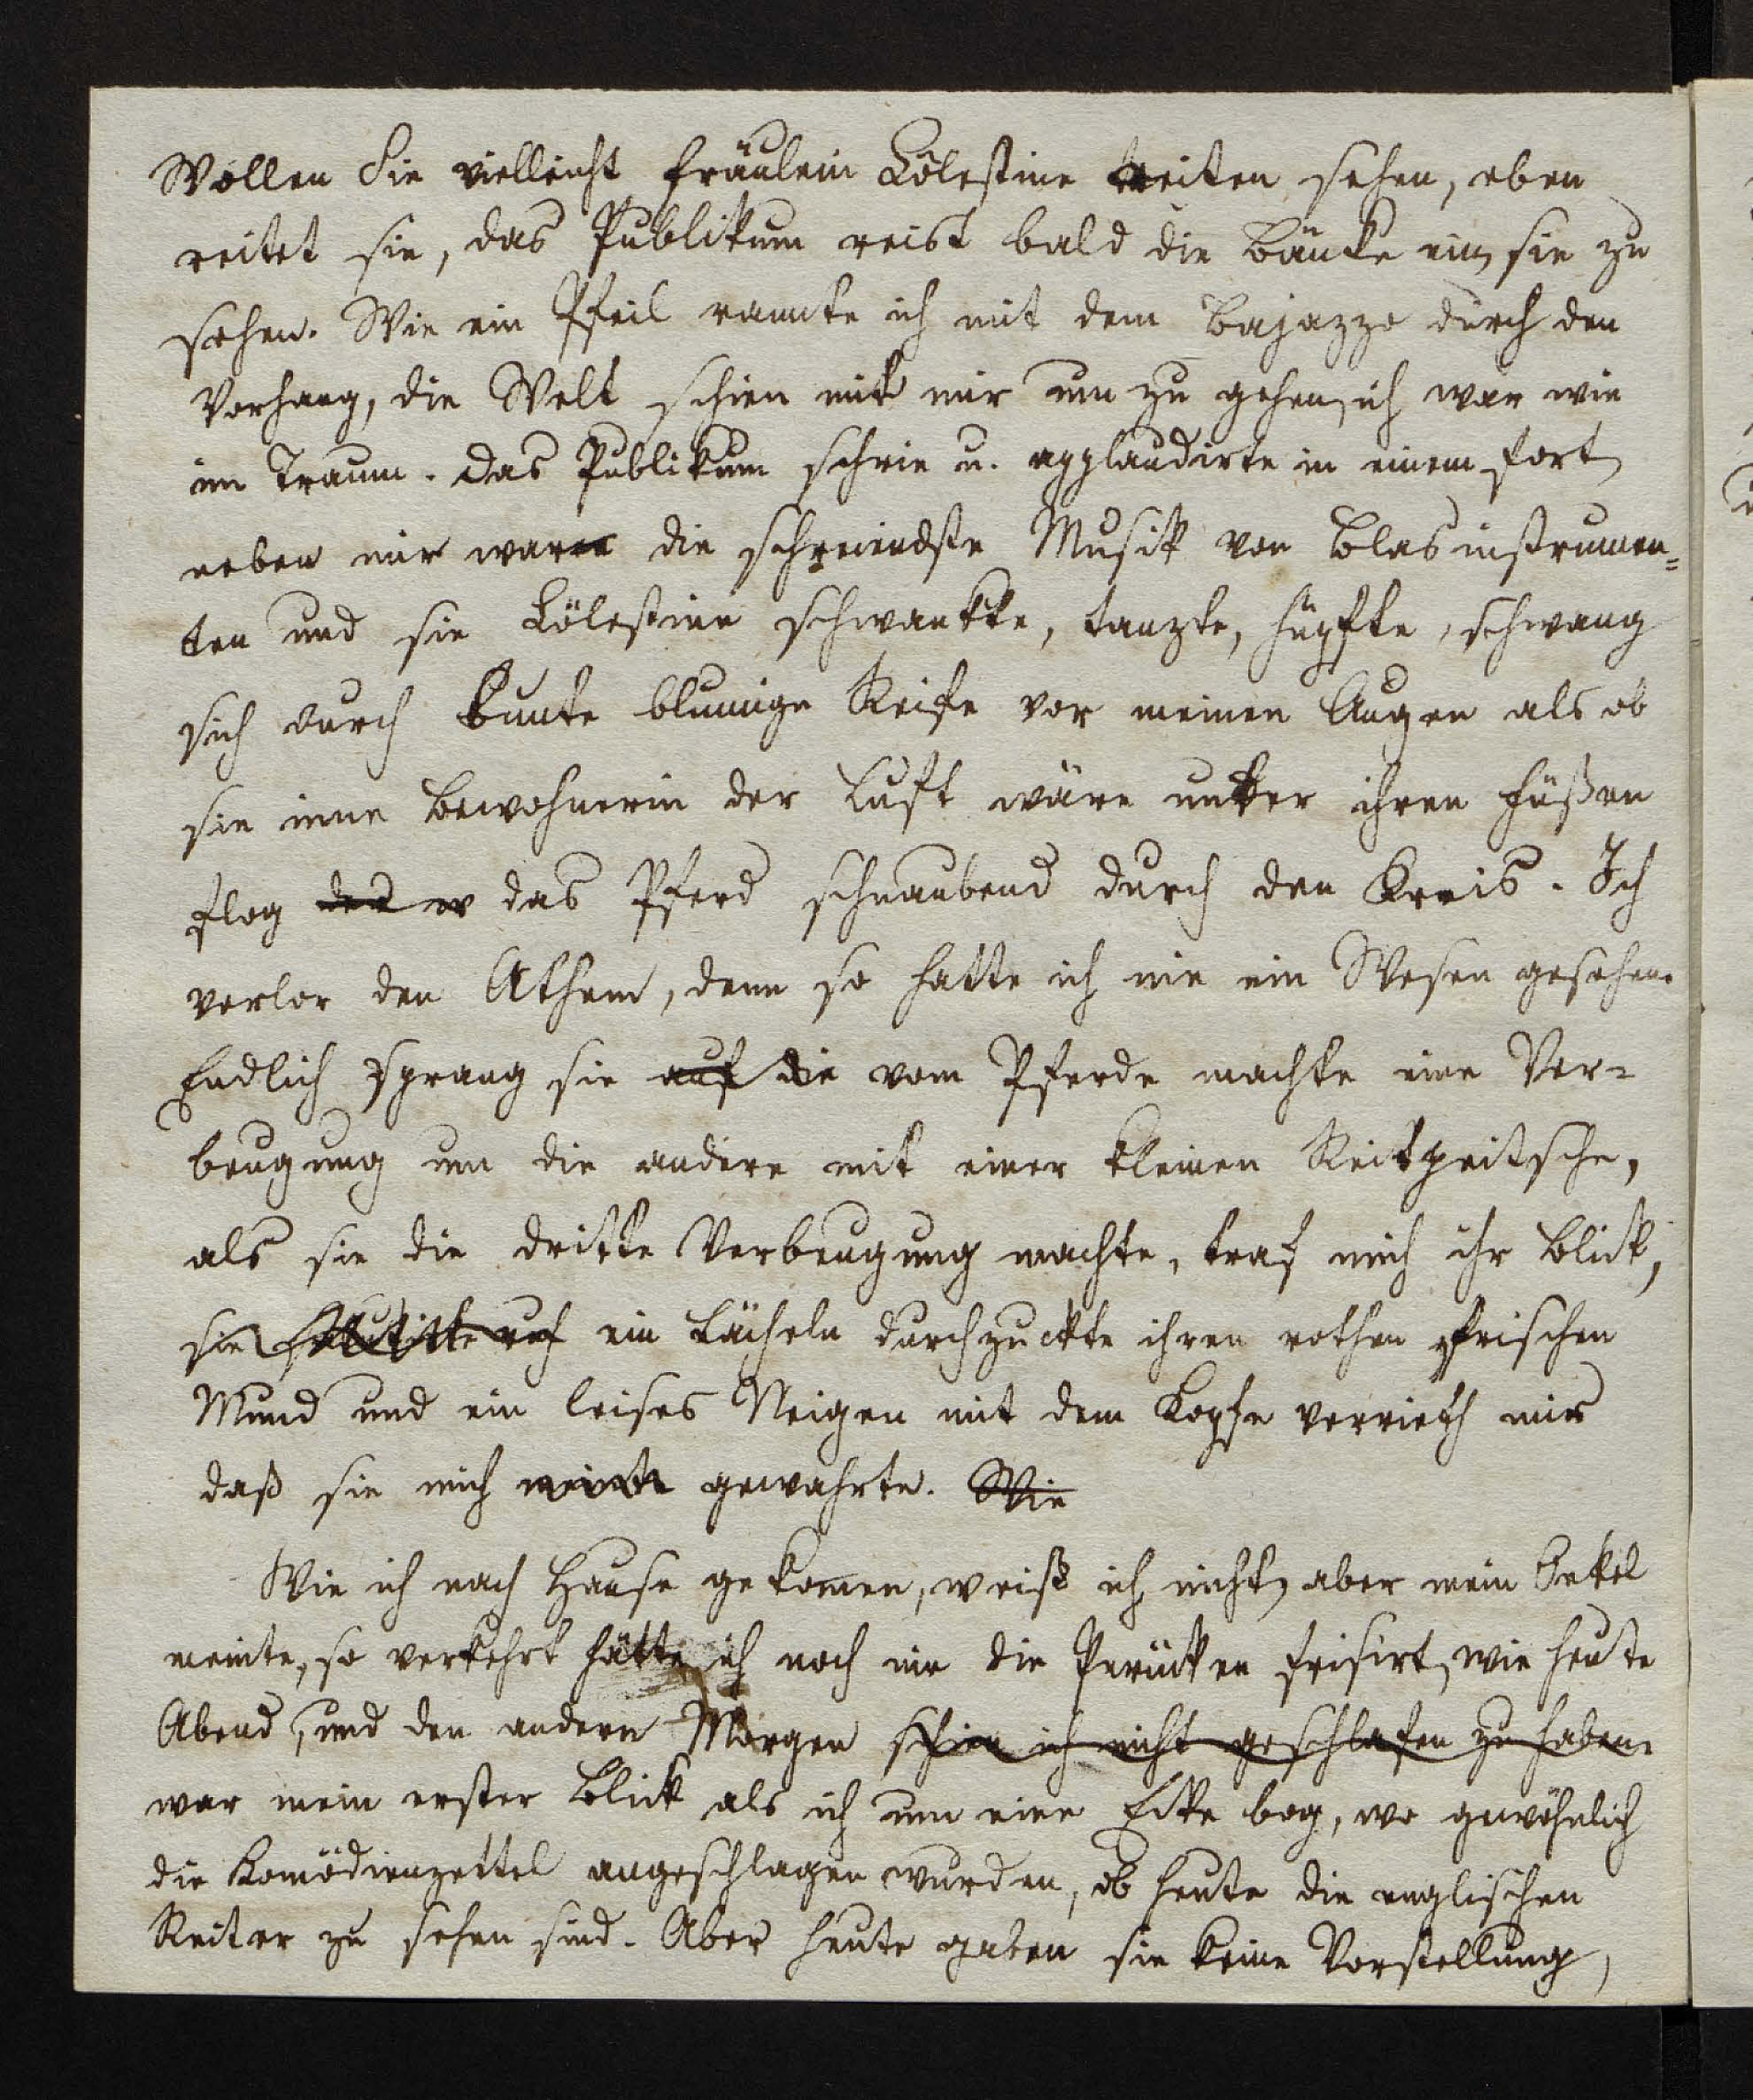 Wollen Sie vielleicht Fräulein Cölestine reiten sehen, eben
reitet sie, das Publikum reist bald die Bänke ein, sie zu
sehen. Wie ein Pfeil rannte ich mit dem Bajazzo durch den
Vorhang, die Welt schien mit mir um zu gehen, ich war wie
im Traum. Das Publikum schrie u. applaudirte in einem fort,
neben mir war die schreiendste Musik von Blasinstrumen=
ten und sie Cölestine schwankte, tanzte, hüpfte, schwang
sich durch bunte blumige Reife vor meinen Augen als ob
sie eine Bewohnerin der Luft wäre unter ihren Füßen
flog das Pferd schnaubend durch den Kreis. Ich
verlor den Athem, denn so hatte ich nie ein Wesen gesehen.
Endlich sprang sie auf die vom Pferde machte eine Ver=
beugung um die andere mit einer kleinen Reitpeitsche,
als sie die dritte Verbeugung machte, traf mich ihr Blick,
sie ein Lächeln durchzuckte ihren rothen frischen
Mund und ein leises Neigen mit dem Kopfe verrieth mir
daß sie mich gewahrte. Wie
Wie ich nach Hause gekommen, weiß ich nicht, aber mein Onkel
meinte, so verkehrt hätte ich noch nie die Perücken frisirt, wie heute
Abend, und den andern Morgen schien ich nicht geschlafen zu haben.
war mein erster Blick als ich um eine Ecke bog, wo gewöhnlich
die Komödienzettel angeschlagen wurden, ob heute die englischen
Reiter zu sehen sind. Aber heute gaben sie keine Vorstellung,